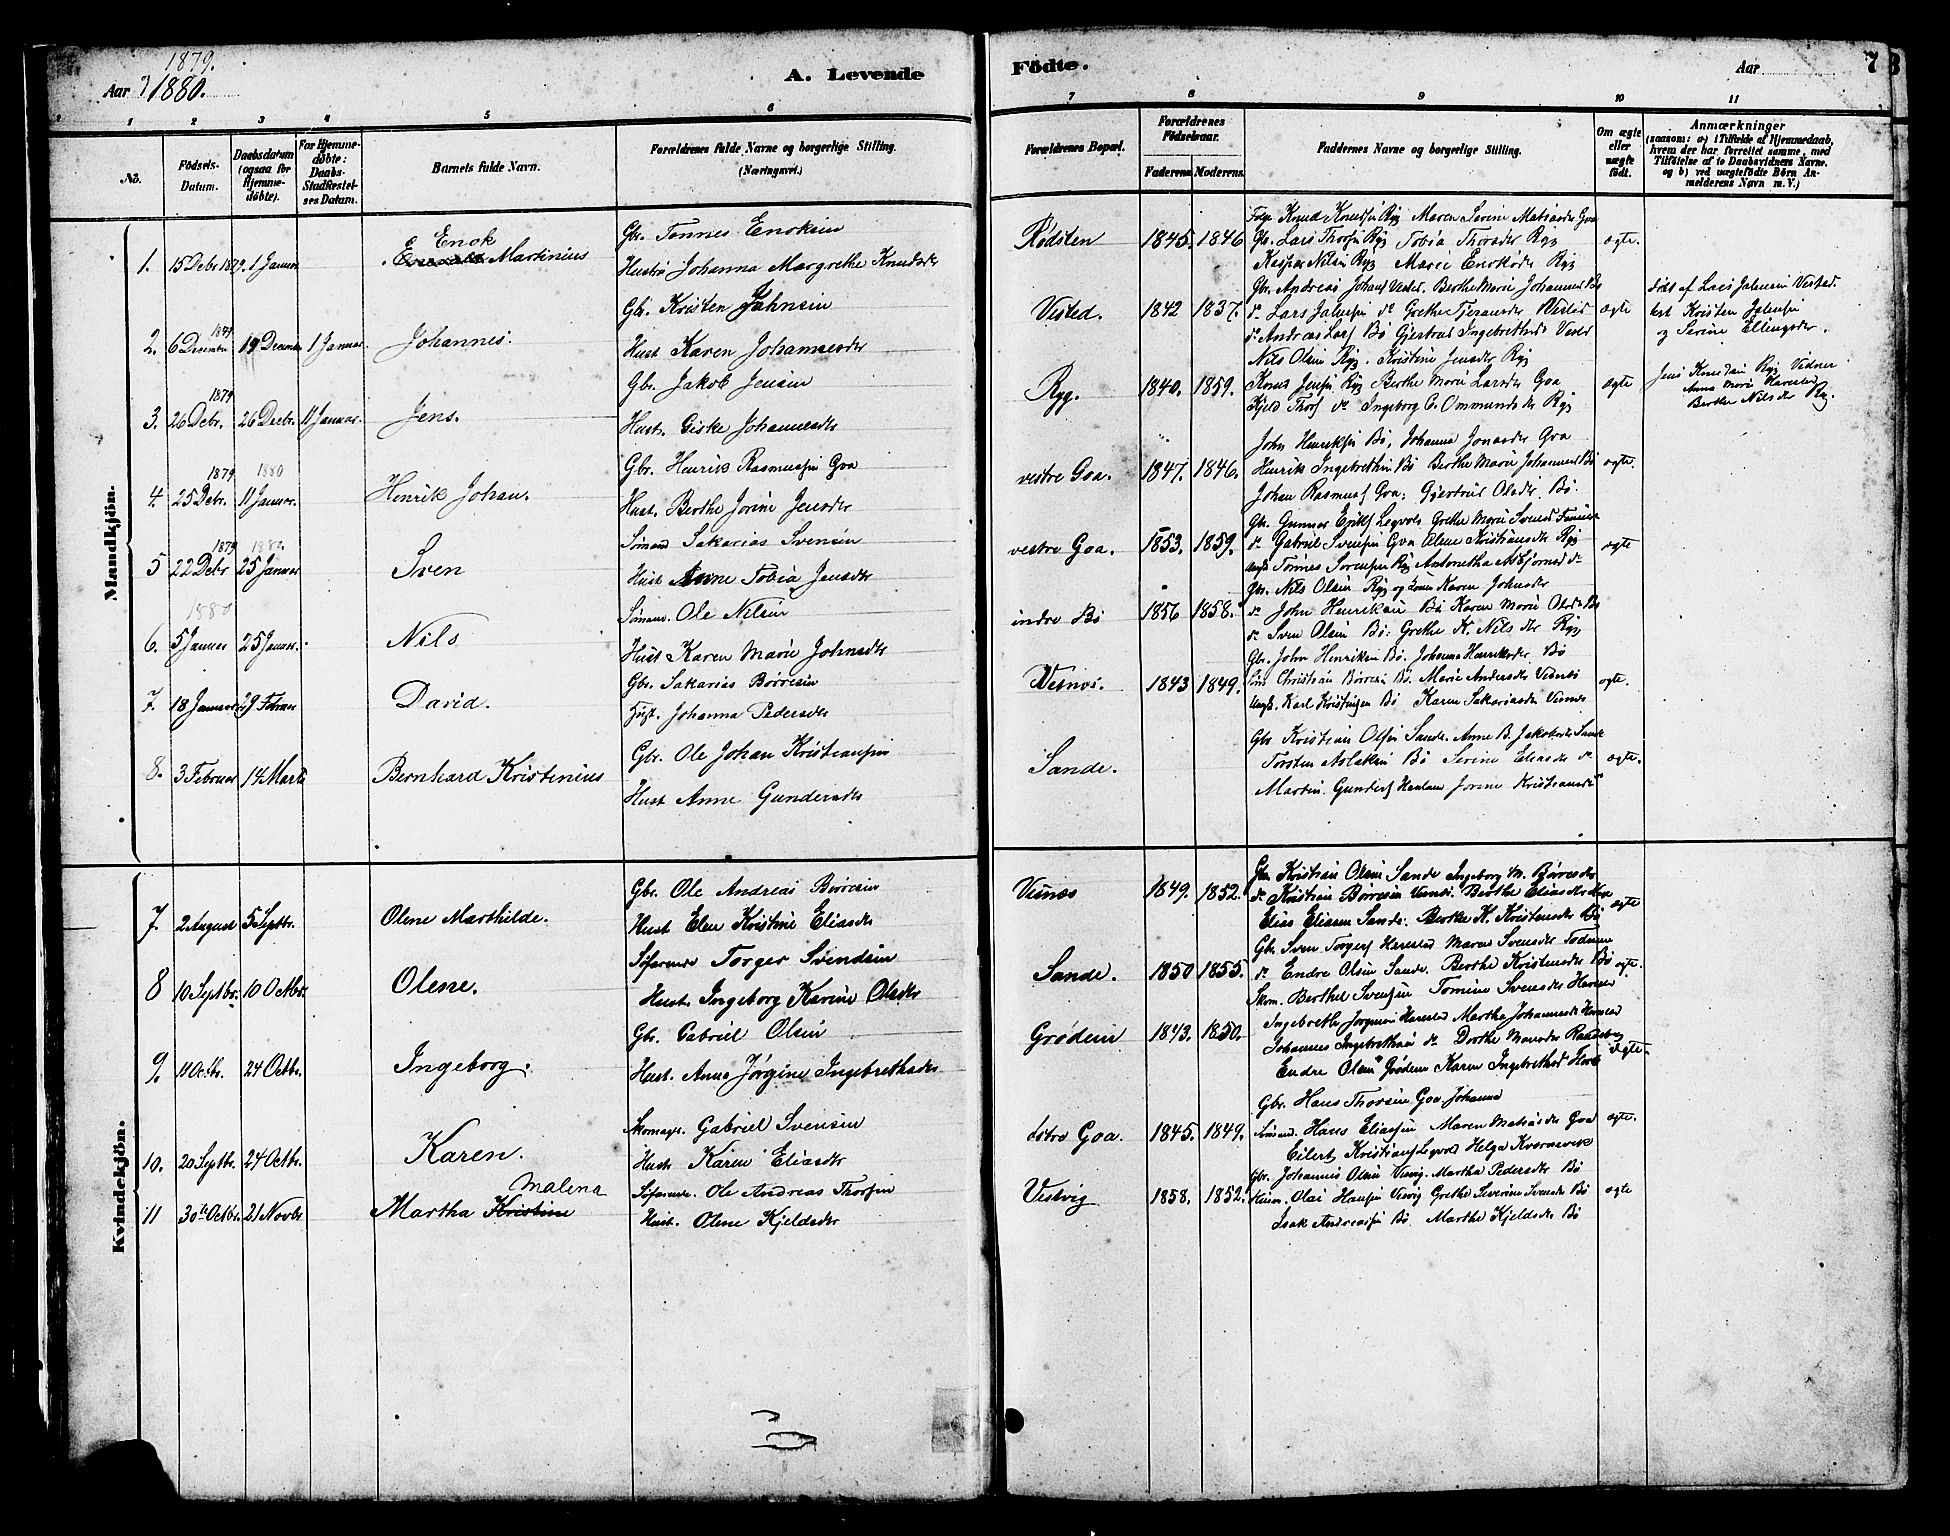 1879.
Aar 1880.
A. Levende
Födte.
Aar
7
1 2 3 4 5 6 7 8 9 10 11
No.
Födsels-Datum.
Daabsdatum (ogsaa for Hjemme-döbte).
For Hjemme-döbte: Daabs-Stadfæstel-ses Datum.
Barnets fulde Navn.
Forældrenes fulde Navne og borgerlige Stilling. (Næringsvei.)
Forældrenes Bopæl.
Forældrenes Födselsaar.
Faderens. Moderens.
Faddernes Navne og borgerlige Stilling.
Om ægte eller uægte födt.
Anmærkninger
(saasom: a) i Tilfælde af Hjemmedaab, hvem der har forrettet samme, med Tilföielse af to Daabsvidners Navne, og b) ved uægtefödte Börn An-melderens Navn m. V.)
Mandkjön.
1. 15 Debr 1879. 1 Januar Enok Martinius
Gbr. Tønnes Enoksen
Hustru Johanna Margrethe Knudsdr
Rødsten 1845. 1846
Knud Knudsen Ryg Maren Serine Mathiasdr Goa
Gb. Lars Thorsen Ryg Tobia Thorsdr Ryg
Kasper Nilsen Ryg Marie Enoksdr Ryg
ægte.
2. 1879 6 December 19 December 1 Januar Johannes.
Gbr. Kristen Jahnsen
Hust Karen Johannesdr
Visted. 1842 1837.
Gbr. Andreas Berthe Marie Johannesd Bø
do Lars do Grethe
do Andreas Bø Gjertrud Ingebrethsdr
ægte
døbt af Lars
test Kristen
og Serine Ellingsdr.
3. 1879 26 Debr. 26 Decbr. 11 Januar. Jens.
Gbr. Jakob Jensen
Hust. Giske Johannesdr
Ryg. 1840. 1859.
Nils Olsen Ryg. Kristine Jensdr Ryg
Knud Jensen Ryg Berthe Marie Larsdr Goa
Kjeld Thors do Ingeborg C. Ommundsdr Ryg
ægte
Jens Ryg Vidner
Anna Marie Harestad
Berthe Nilsdr Ryg.
4. 1879 25 Debr. 1880 11 Januar. Henrik Johan.
Gbr. Henrik Rasmussen Goa
Hust. Berthe Jorine Jensdr
vestre Goa. 1847. 1846.
John Henriksen Bø, Johanna Jonasdr Goa
Henrik Ingebrethsen Bø Berthe Marie Johannesd Bø
Johan Rasmuss Goa, Gjertrud Olsdr Bø.
ægte.
5 1879 22 Debr 1880 25 Januar Sven
Sømand Sakarias Svensen
Hust Anne Tobia Jensdr
vestre Goa. 1853. 1859.
Gb. Gunnar Grethe Marie Svensd
do Gabriel Svensen Goa Olene Kristiansdr Ryg
Ungk Tønnes Sørensen Ryg Antonetha Asbjørnsd do
ægte
1880
6. 5 Januar 25 Januar. Nils
Sømand. Ole Nilsen
Hust Karen Marie Johnsdr
indre Bø 1856 1858.
Gb. Nils Olsen Ryg og Kone Karen Johnsdr
do John Henriksen Bø Karen Marie Olsdr Bø
do Sven Olsen Bø. Grethe K. Nilsdr Ryg
7. 18 Januar 29 Februar David.
Gbr. Sakarias Børresen
Hust. Johanna Pedersdr
Vesnes. 1843 1849.
Gbr. John Henriksen Bø. Johanna Henriksdr Bø
Christian Børresen Bø. Marie Andersdr
Ungk. Karl Kristensen Bø Karen Sakariasdr Visnes
ægte.
8. 3 Februar 14 Marts Bernhard Kristinius
Gbr. Ole Johan Kristiansen
Hust Anne Gundersdr
Sande.
Gbr Kristian Olsen Sande. Anne B. Jakobsdr Sande
Torsten Aslaksen Bø Serine Eliasdr do
Martin Gunders Jorine Kristiansdr
ægte.
Kvindekjön.
7. 2 August 5 Septbr. Olene Marthilde.
Gbr. Ole Andreas Børresen
Hust Elen Kristine Eliasdr
Visnes 1849. 1852.
Gbr Kristian Olsen Sande Ingeborg M. Børresdr
do Kristian Børresen Visnes. Berthe Eliasdr
Elias Eliasen Sande. Berthe K. Kristensdr Bø
ægte
8 10 Septbr. 10 Octbr. Olene.
Søfarende Torger Svendsen
Hust. Ingeborg Karine Olsdr
Sande. 1850 1855.
Gb Sven Torgers Harestad Maren Svensdr Todnem
do Endre Olsen Sande. Berthe Kristensdr Bø
Skom. Berthel Svensen Tomine Svensdr Harestad
ægte.
9. 11 Octbr. 24 Octbr. Ingeborg.
Gbr. Gabriel Olsen
Hust. Anna Jørgine Ingebrethsdr
Grødem 1843. 1850.
Ingebreth Jørgensen Harestad Martha Johannesdr Harestad
Johannes Ingebrethsen do Dorthe Randeberg
Endre Olsen Grødem Karen Ingebrethsd
ægte.
10. 20 Septbr. 24 Octbr. Karen.
Skomagr. Gabriel Svensen
Hust. Karen Eliasdr
østre Goa. 1845. 1849.
Gbr. Hans Thorsen Goa Johanna
Sømand. Hans Eliassen Maren Mathiasdr Goa
Eilert Kristians Helga Kvernevik
ægte.
11 30te Octbr. 21 Novbr Martha Kristine Malena
Søfarende. Ole Andreas Thorsen
Hust. Olene Kjeldsdr
Vestvig 1858. 1852.
Gbr. Johannes Olsen Visvig. Martha Pedersdr Bø
Olai Hansen Visvig Grethe Severine Svensdr Bø
Isak Andreassen Bø. Marthe Kjeldsdr Bø
ægte